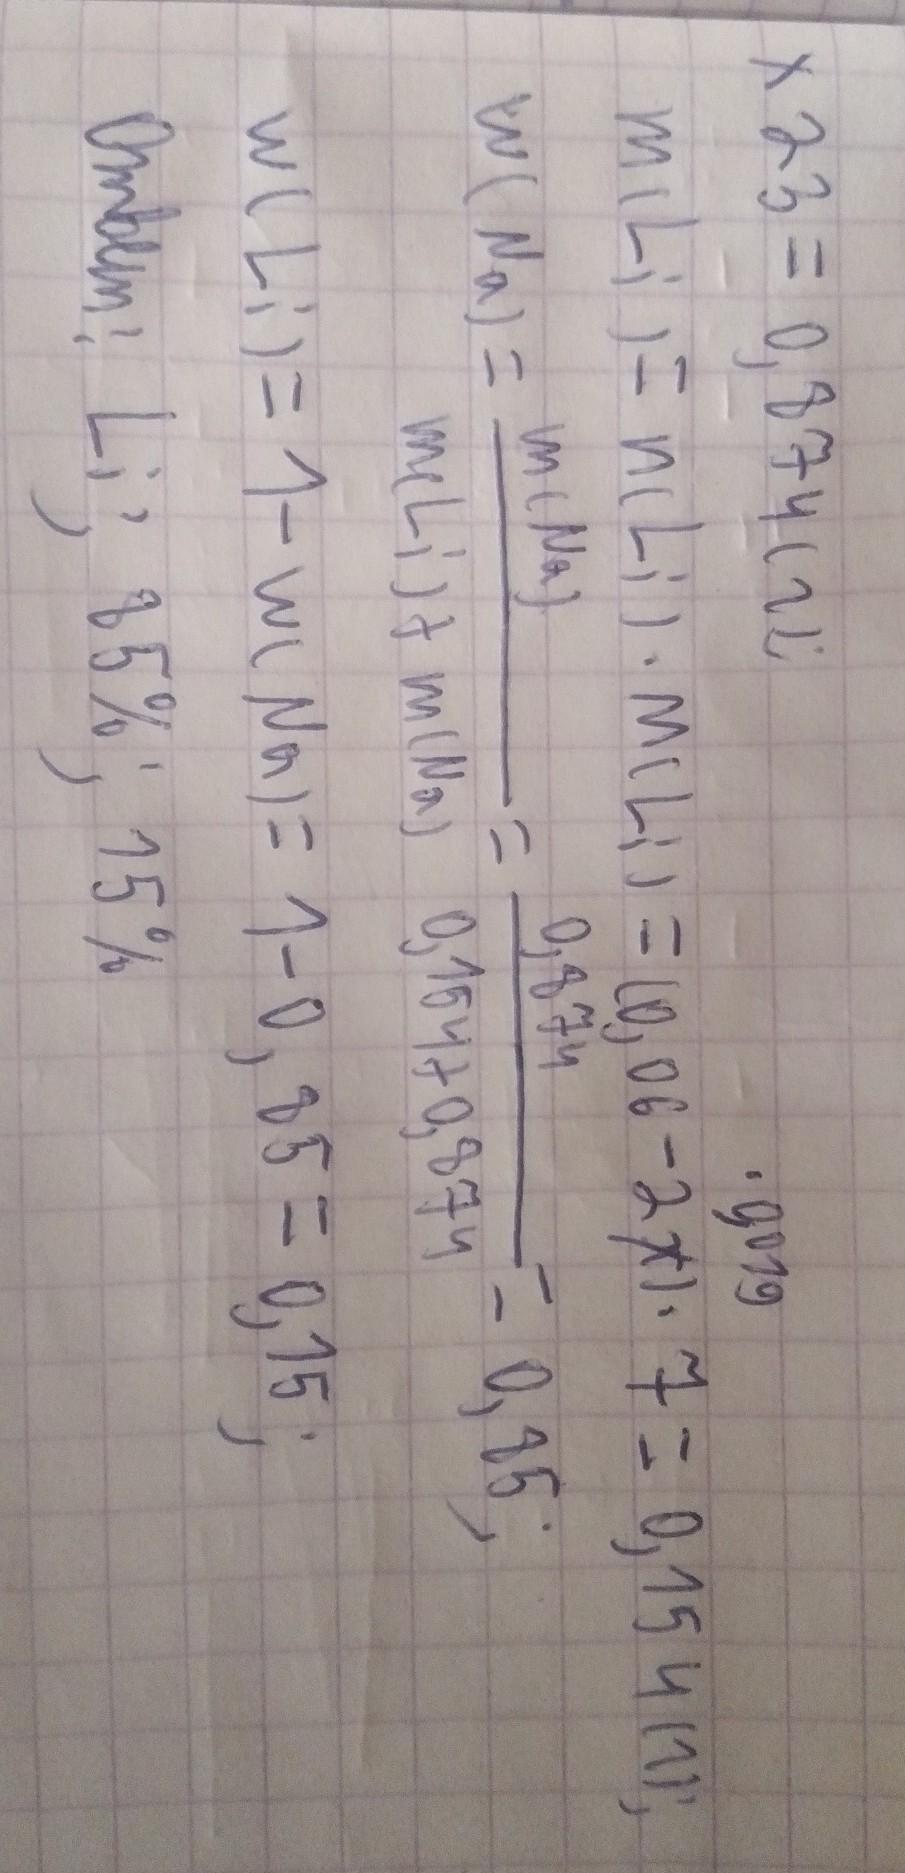 x 23 = 0,874 (г);
m(Li) = n(Li) · M(Li) = (0,06 - 2x) · 7 = 0,154 (г);
w(Na) = m(Na) / m(Li) + m(Na) = 0,874 / 0,154 + 0,874 = 0,85;
w(Li) = 1 - w(Na) = 1 - 0,85 = 0,15;
Ответ: Li; 85%; 15%